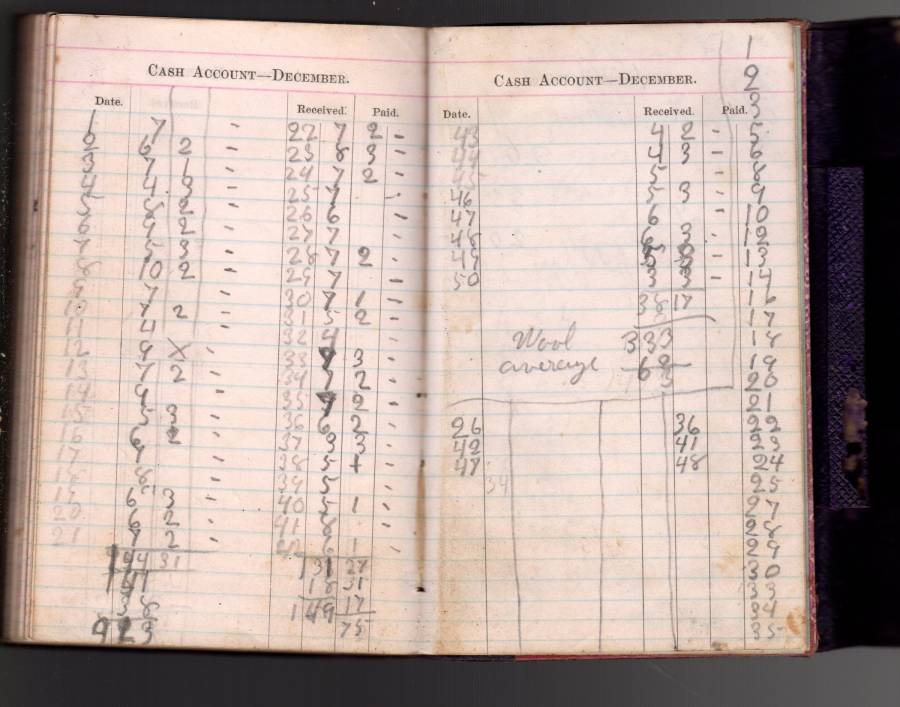 CASH ACCOUNT—DECEMBER.
Date. Received. Paid.
1 7 -
2 6 2 -
3 7 1 -
4 4 3 -
5 8 2 -
6 9 2 -
7 5 3 -
8 10 2 -
9 7 -
10 7 2 -
11 4 -
12 9 X -
13 7 2 -
14 9 -
15 5 3 -
16 6 2
17 7
18 8
19 6 3
20 6 2 -
21 7 2 -
144 31
22 7 2 -
23 8 3 -
24 7 2 -
25 7 -
26 6 -
27 7 -
28 7 2 -
29 7 -
30 7 1 -
31 5 2 -
32 4 -
33 3 -
34 7 2 -
35 2 -
36 6 2 -
37 9 3 -
38 5 1 -
39 5 -
40 5 1 -
41 8 -
1 -
131 27
18 31
149 17
75
CASH ACCOUNT—DECEMBER.
Date. Received. Paid.
43 4 2 -
44 4 3 -
45 5 -
46 5 3 -
47 6 -
48 6 3 -
49 -
50 3 3 -
38 17
Wool 333
average
26 36
42 41
47 48
34
1
2
3
5
6
8
9
10
12
13
14
16
17
18
19
20
21
22
23
24
25
27
28
29
30
33
34
35